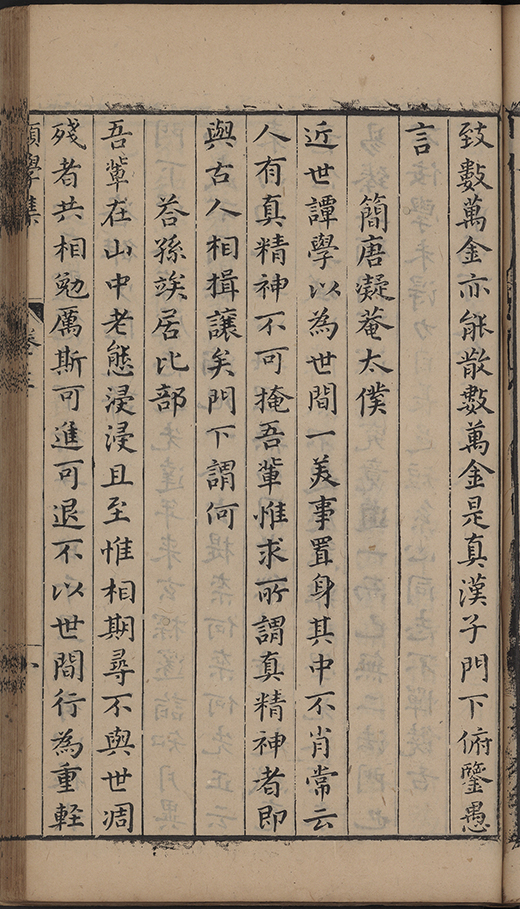 致數萬金亦能散數萬金是真漢子門下俯鑒愚
言
簡唐凝菴太僕
近世譚學以為世間一美事置身其中不肖常云
人有真精神不可掩吾輩惟求所謂真精神者即
與古人相揖讓矣門下謂何
荅孫竢居比部
吾輩在山中老態浸浸且至惟相期尋不與世凋
殘者共相勉厲斯可進可退不以世間行為重輕
願學集
卷三